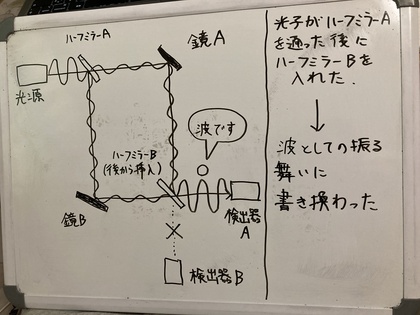 ハーフミラーA
鏡A
光源
波です
ハーフミラーB
(後から挿入)
鏡B
検出器
A
検出器B
光子がハーフミラーA
を通った後に
ハーフミラーBを
入れた.
波としての振る
舞いに
書き換わった